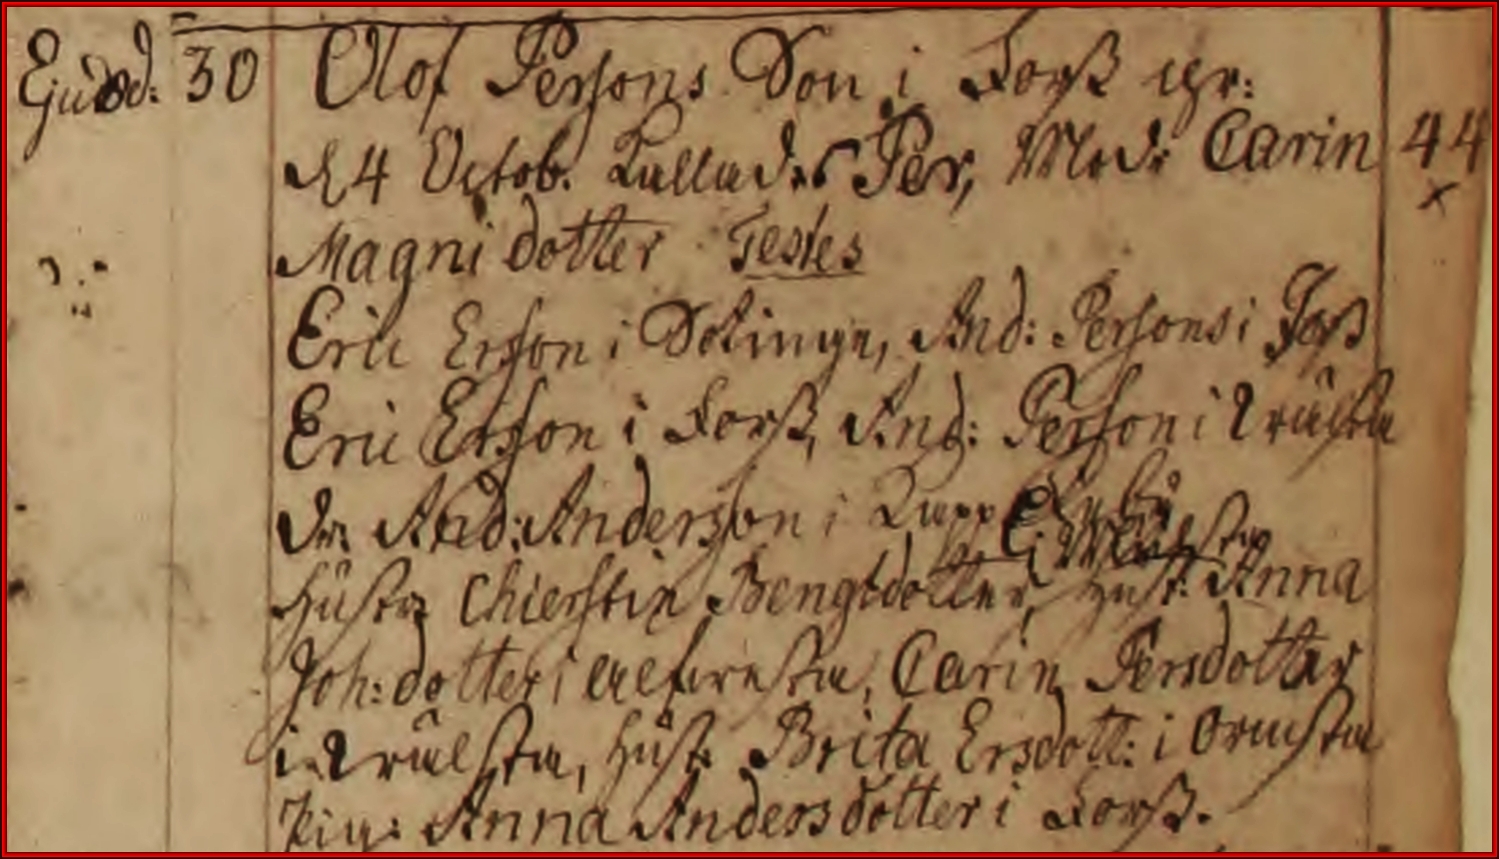 Ejusd: 30 Olof Persons Son i Forß
d 4 Octob. Kallades Per, Mod: Carin 44
Magni dotter Testes
Eric Erson i Solinge, And: Persons i Forß
Eric Erson i Forß, And: Person i
dr: And: Anderson i
Hustr: Chierstin Bengtdotter, Hust: Anna
Joh: dotter i Carin Persdotter
i Hust: Brita Ersdott: i Ormsta
Pig: Anna Andersdotter i Forß.